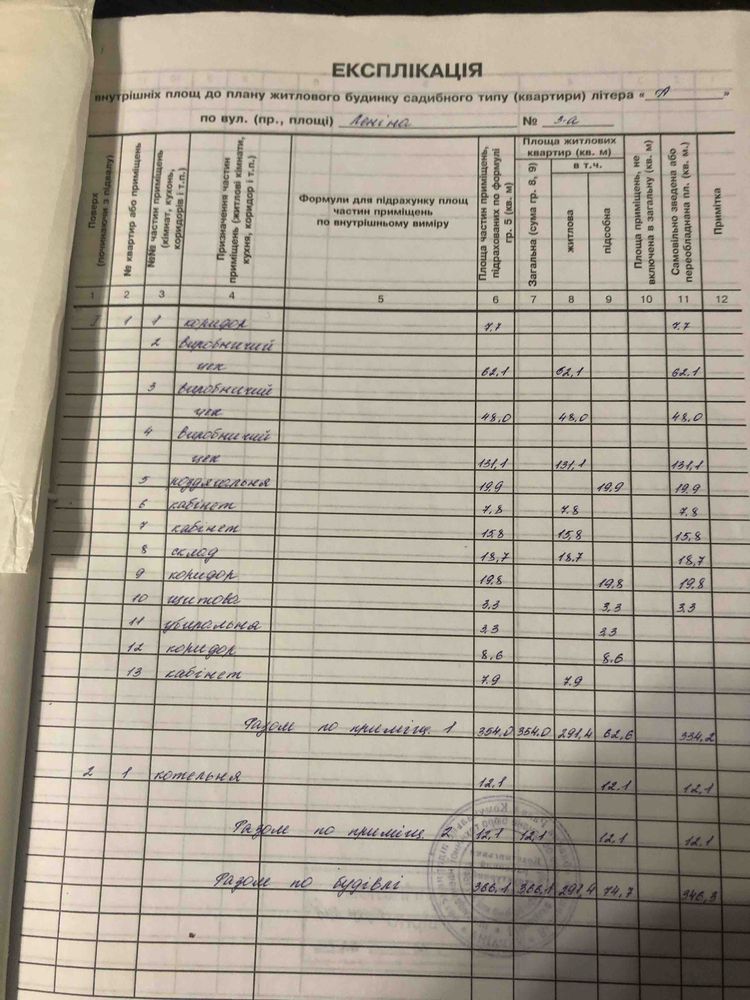 ЕКСПЛІКАЦІЯ
внутрішніх площ до плану житлового будинку садибного типу (квартири) літера « А »
по вул. (пр., площі) Леніна № 3-а
Поверх (починаючи з підвалу)
№ квартир або приміщень
№№ частин приміщень (кімнат, кухонь, коридорів і т.п.)
Призначення частин приміщень (житлові кімнати, кухня, коридор і т.п.)
Формули для підрахунку площ частин приміщень по внутрішньому виміру
Площа частин приміщень, підрахованих по формулі гр. 5 (кв. м)
Площа житлових квартир (кв. м)
Загальна (сума гр. 8, 9)
в т.ч.
житлова
підсобна
Площа приміщень, не включена в загальну (кв. м)
Самовільно зведена або переобладнана пл. (кв. м.)
Примітка
1 2 3 4 5 6 7 8 9 10 11 12
1 1 коридор 7,7 7,7
2 виробничий
цех 62,1 62,1 62,1
3 виробничий
цех 48,0 48,0 48,0
4 виробничий
цех 131,1 131,1 131,1
5 роздягальня 19,9 19,9 19,9
6 кабінет 7,8 7,8 7,8
7 кабінет 15,8 15,8 15,8
8 склад 18,7 18,7 18,7
9 коридор 19,8 19,8 19,8
10 щитова 3,3 3,3 3,3
11 убиральня 3,3 3,3
12 коридор 8,6 8,6
13 кабінет 7,9 7,9
Разом по приміщ. 1 354,0 354,0 291,4 62,6 334,2
2 1 котельня 12,1 12,1 12,1
Разом по приміщ. 2 12,1 12,1 12,1 12,1
Разом по будівлі 366,1 366,1 291,4 74,7 346,3